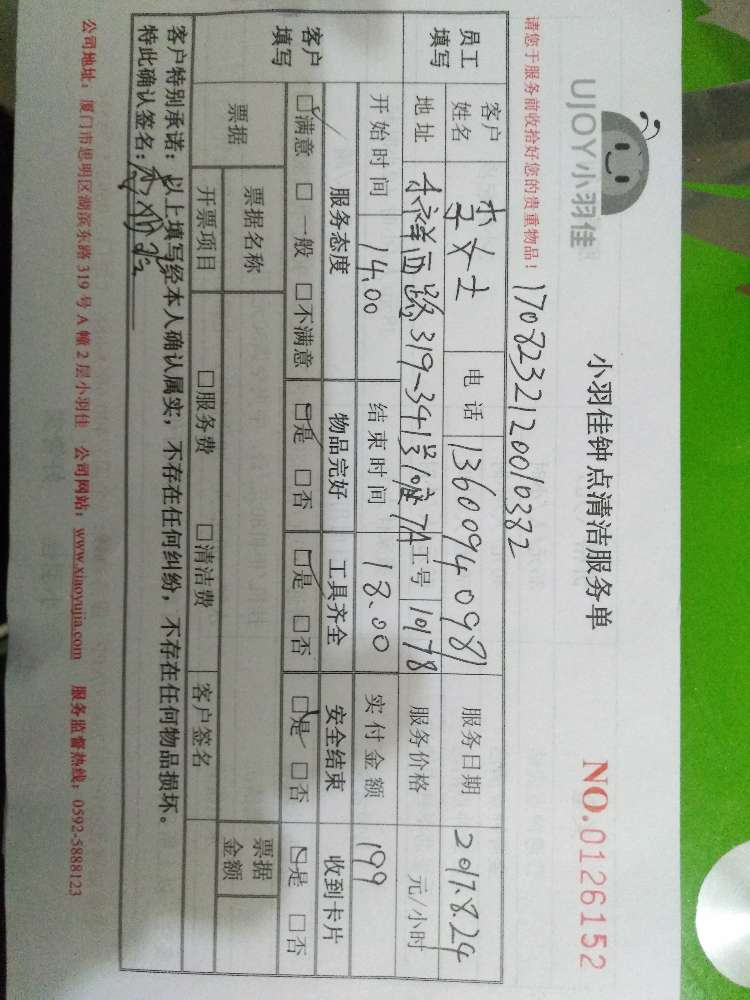 UJOY小羽佳
小羽佳钟点清洁服务单
NO.0126152
请您于服务前收拾好您的贵重物品！
1708232120010382
员工填写 客户姓名 李女士 电话 13600940981 服务日期 2017.8.24
地址 西路319-341号 7A 工号 10178 服务价格 元/小时
开始时间 14.00 结束时间 18.00 实付金额 199
客户填写 服务态度 物品完好 工具齐全 安全结束 收到卡片
☑满意 □一般 □不满意 ☑是 □否 ☑是 □否 ☑是 □否 ☑是 □否
票据 票据名称 票据金额
开票项目 □服务费 □清洁费 客户签名
客户特别承诺：以上填写经本人确认属实，不存在任何纠纷，不存在任何物品损坏。
特此确认签名：
公司地址：厦门市思明区湖滨东路319号A幢2层小羽佳 公司网站：www.xiaoyujia.com 服务监督热线：0592-5888123